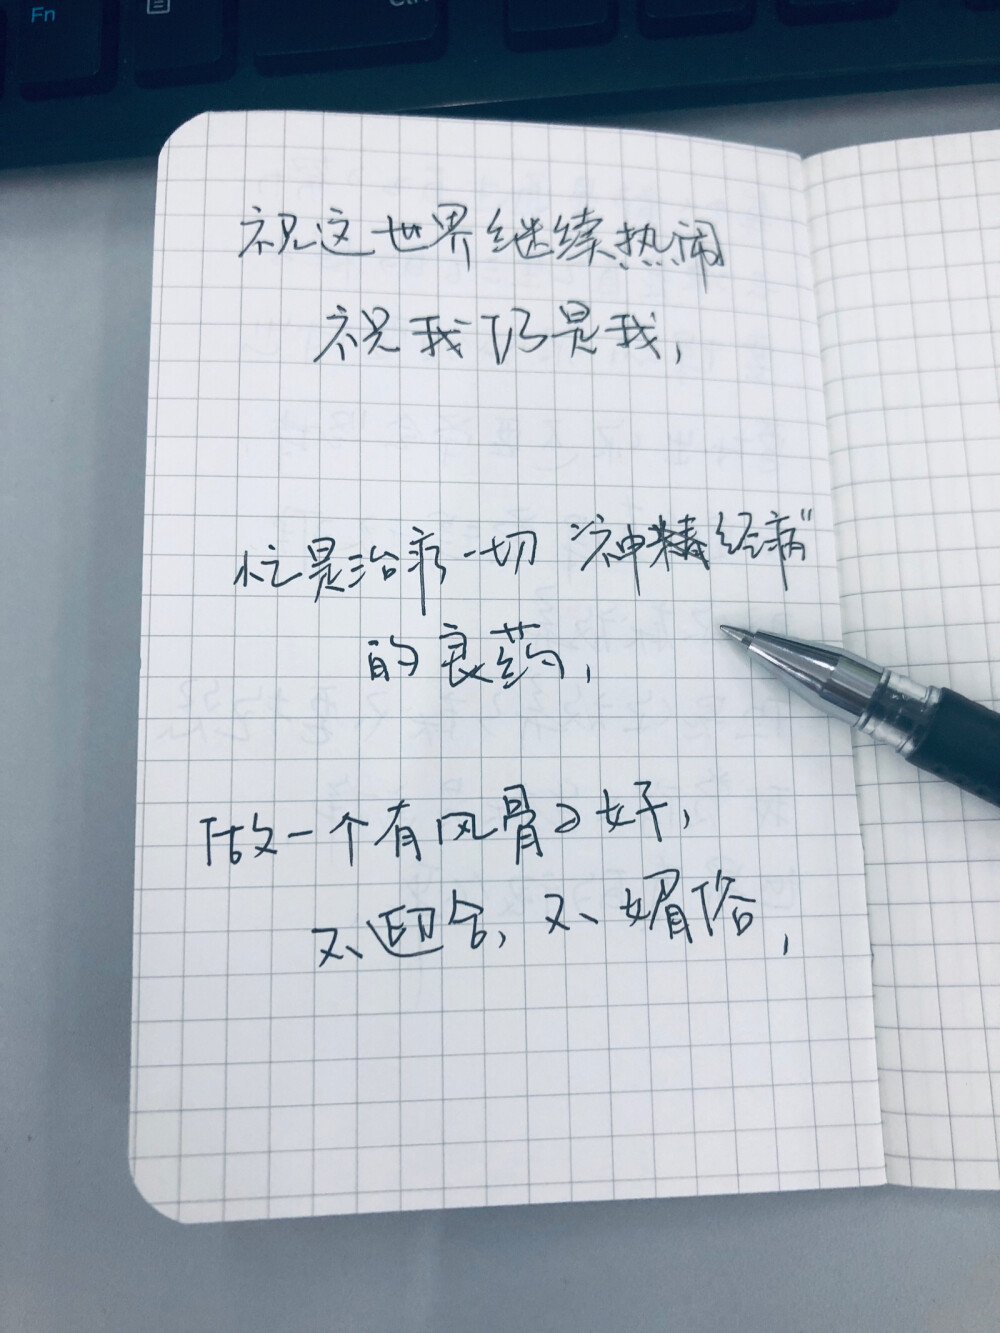 Fn
Ctrl
祝这世界继续热闹
祝我仍是我,
忙是治疗一切“神精经病”
的良药,
做一个有风骨的好,
不迎合,不媚俗,